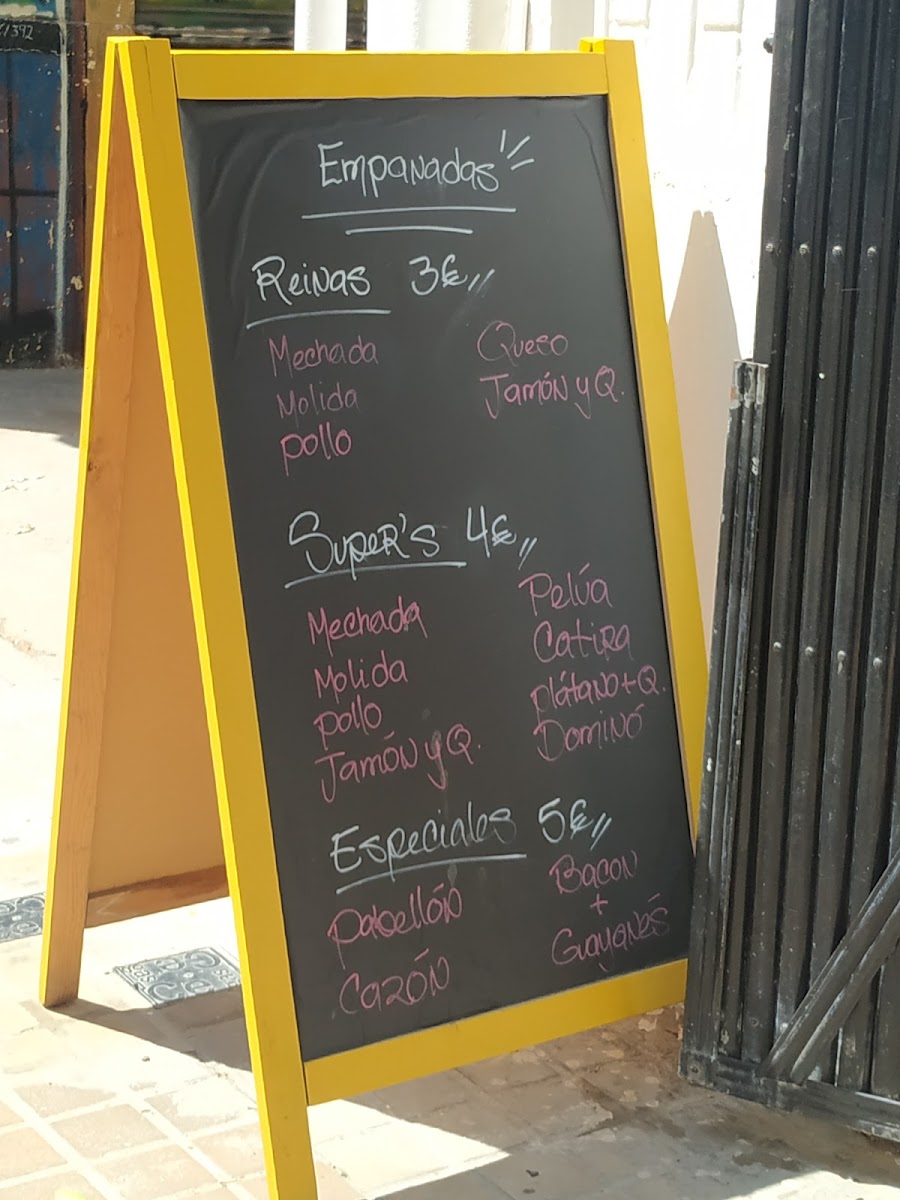 Empanadas
Reinas 3€
Mechada
Molida
Pollo
Queso
Jamón y Q.
Super's 4€
Mechada
Molida
Pollo
Jamón y Q.
Pelúa
Catira
Plátano + Q.
Dominó
Especiales 5€
Pabellón
Cazón
Bacon
+
Guayanés